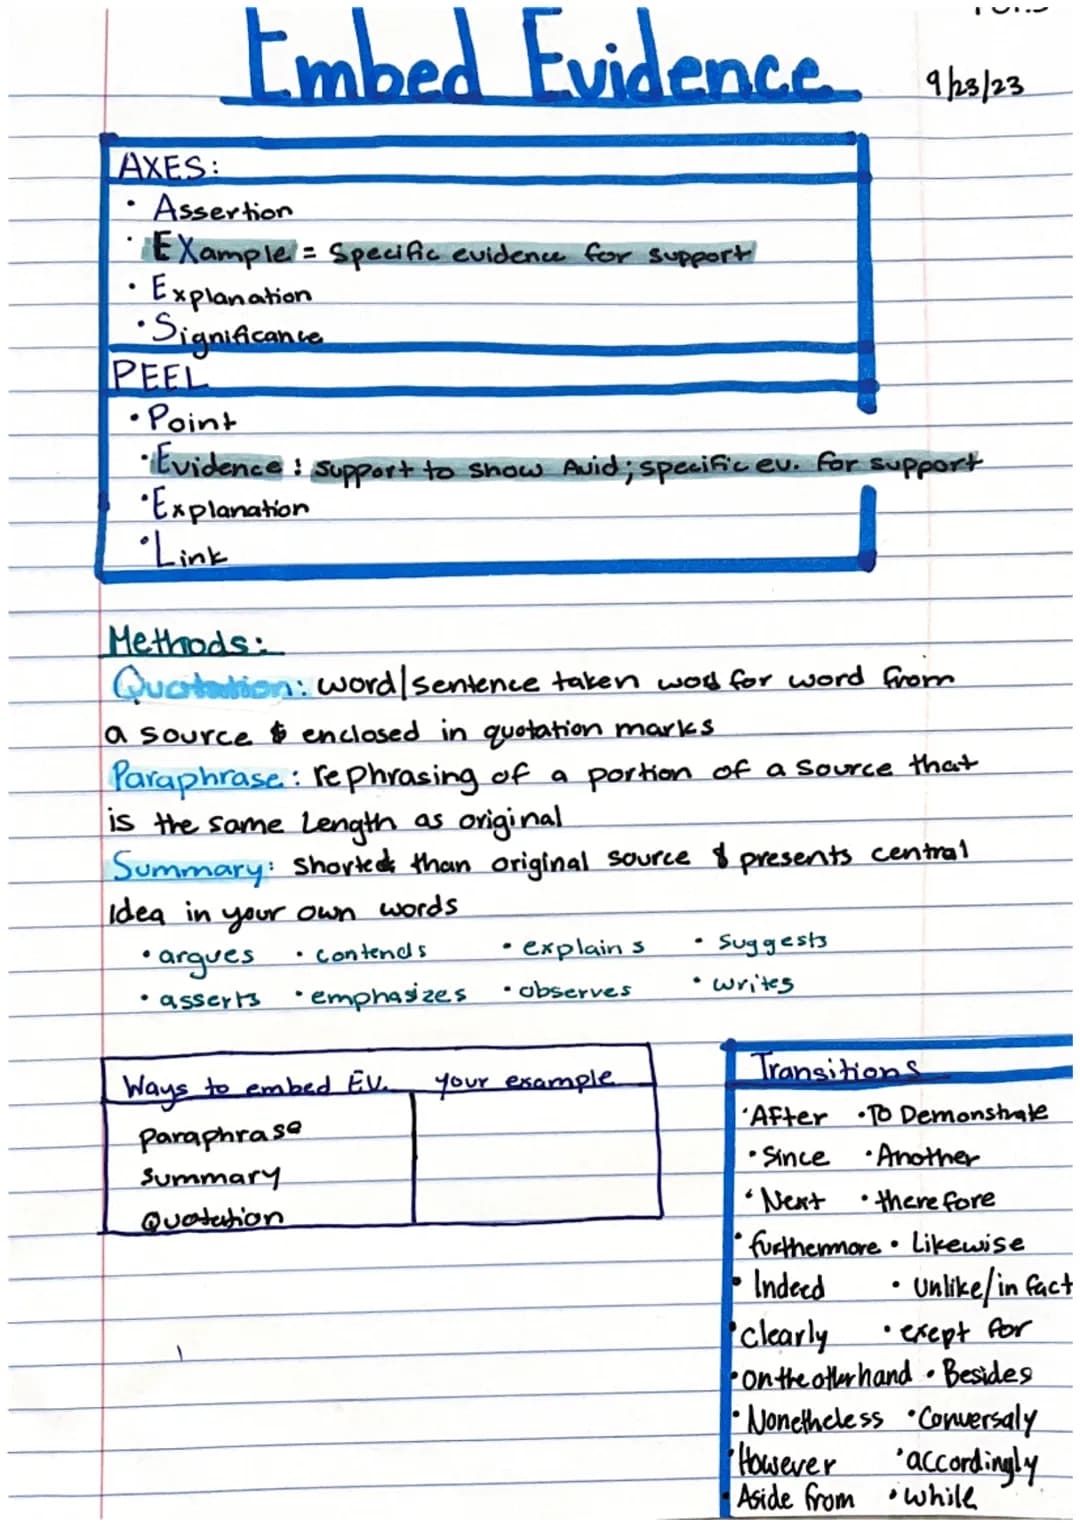 Embed Evidence
9/23/23
AXES:
• Assertion
• EXample = Specific evidence for support
• Explanation
• Significance
PEEL
• Point
• Evidence : support to show Avid; specific ev. for support
• Explanation
• Link
Methods:
Quotation: word/sentence taken word for word from
a source & enclosed in quotation marks
Paraphrase: rephrasing of a portion of a source that
is the same length as original
Summary: shorted than original source & presents central
idea in your own words
• argues • contends • explains • suggests
• asserts • emphasizes • observes • writes
Ways to embed EV. your example
paraphrase
summary
Quotation
Transitions
• After • To Demonstrate
• Since • Another
• Next • therefore
• furthermore • Likewise
• Indeed • unlike/in fact
• clearly • exept for
• on the other hand • Besides
• Nonetheless • Conversaly
• However • accordingly
• Aside from • while